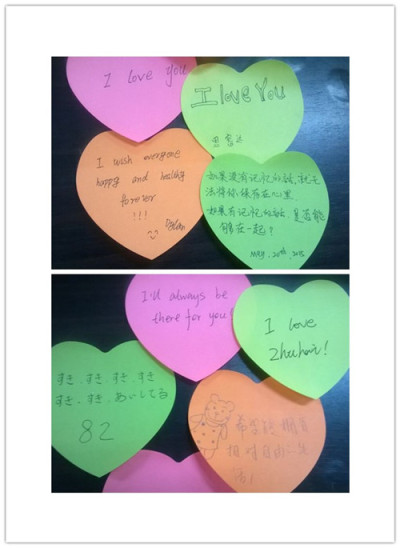 I love you
I love You
I wish everyone
happy and healthy
forever
!!!
Dylan
如果没有记忆的话,就无
法将你保存在心里.
如果有记忆的话,是否能
够在一起?
May. 20th, 2015
I'll always be
there for you!
I love
Zhuhai!
すき、すき、すき、すき
すき、すき、あいしてる
82
希望能拥有